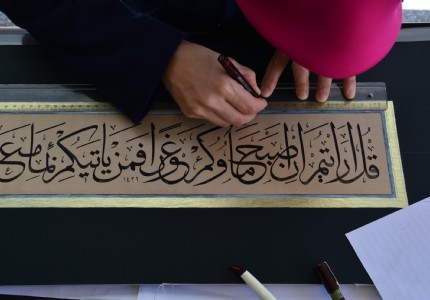 قل أرأيتم إن أصبح ماؤكم غورا فمن يأتيكم بماء معين